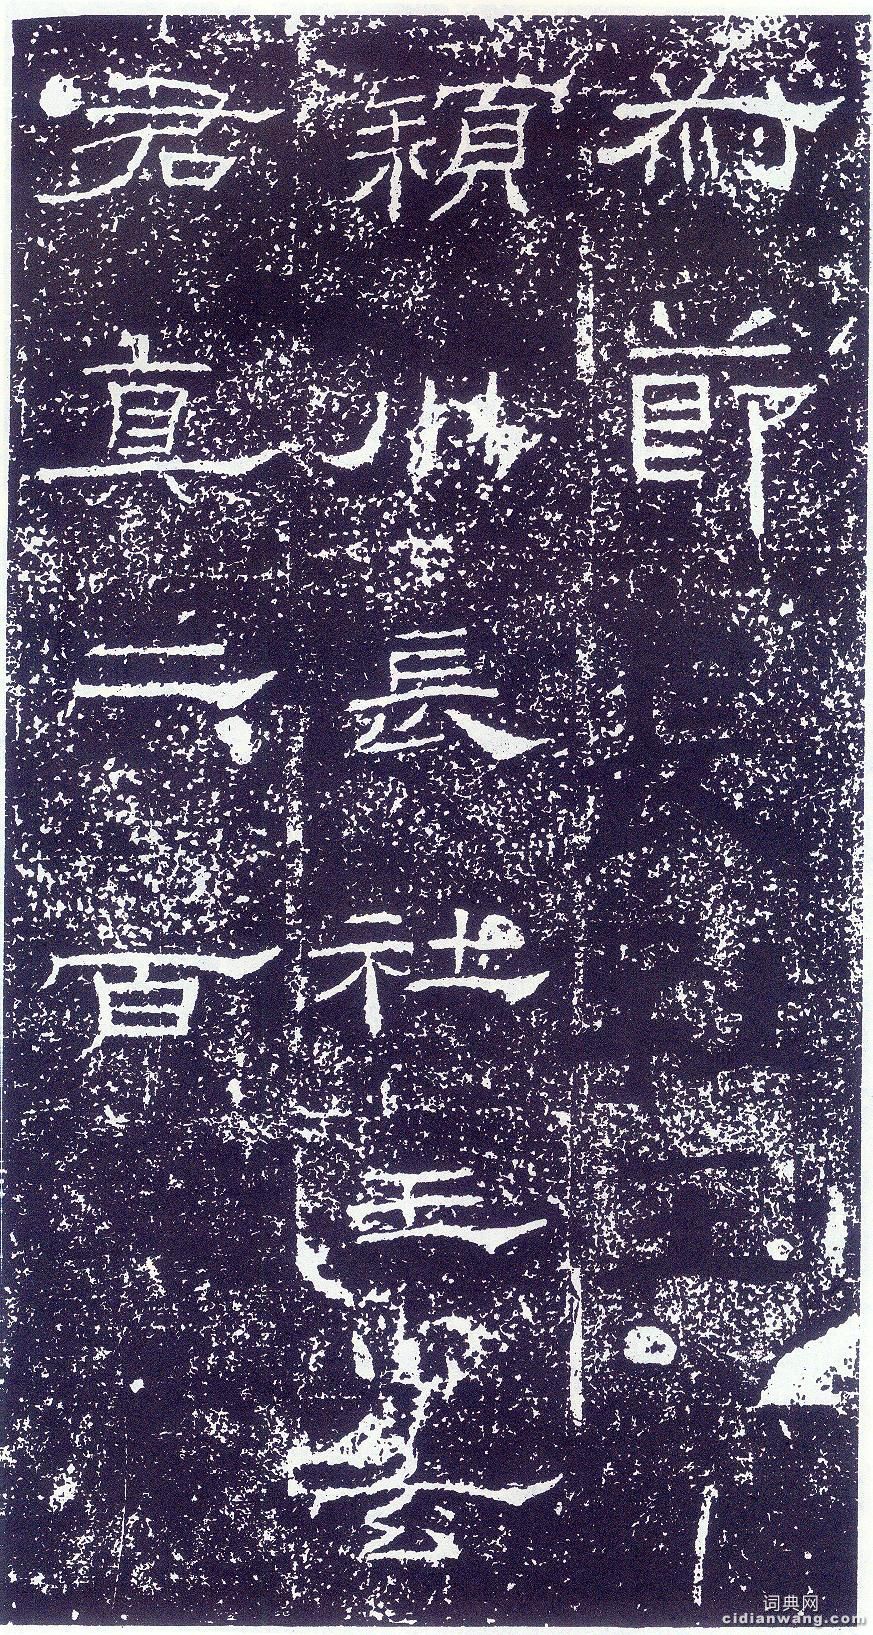 叔節
穎川長社王玄
君真二百
词典网
cidianwang.com